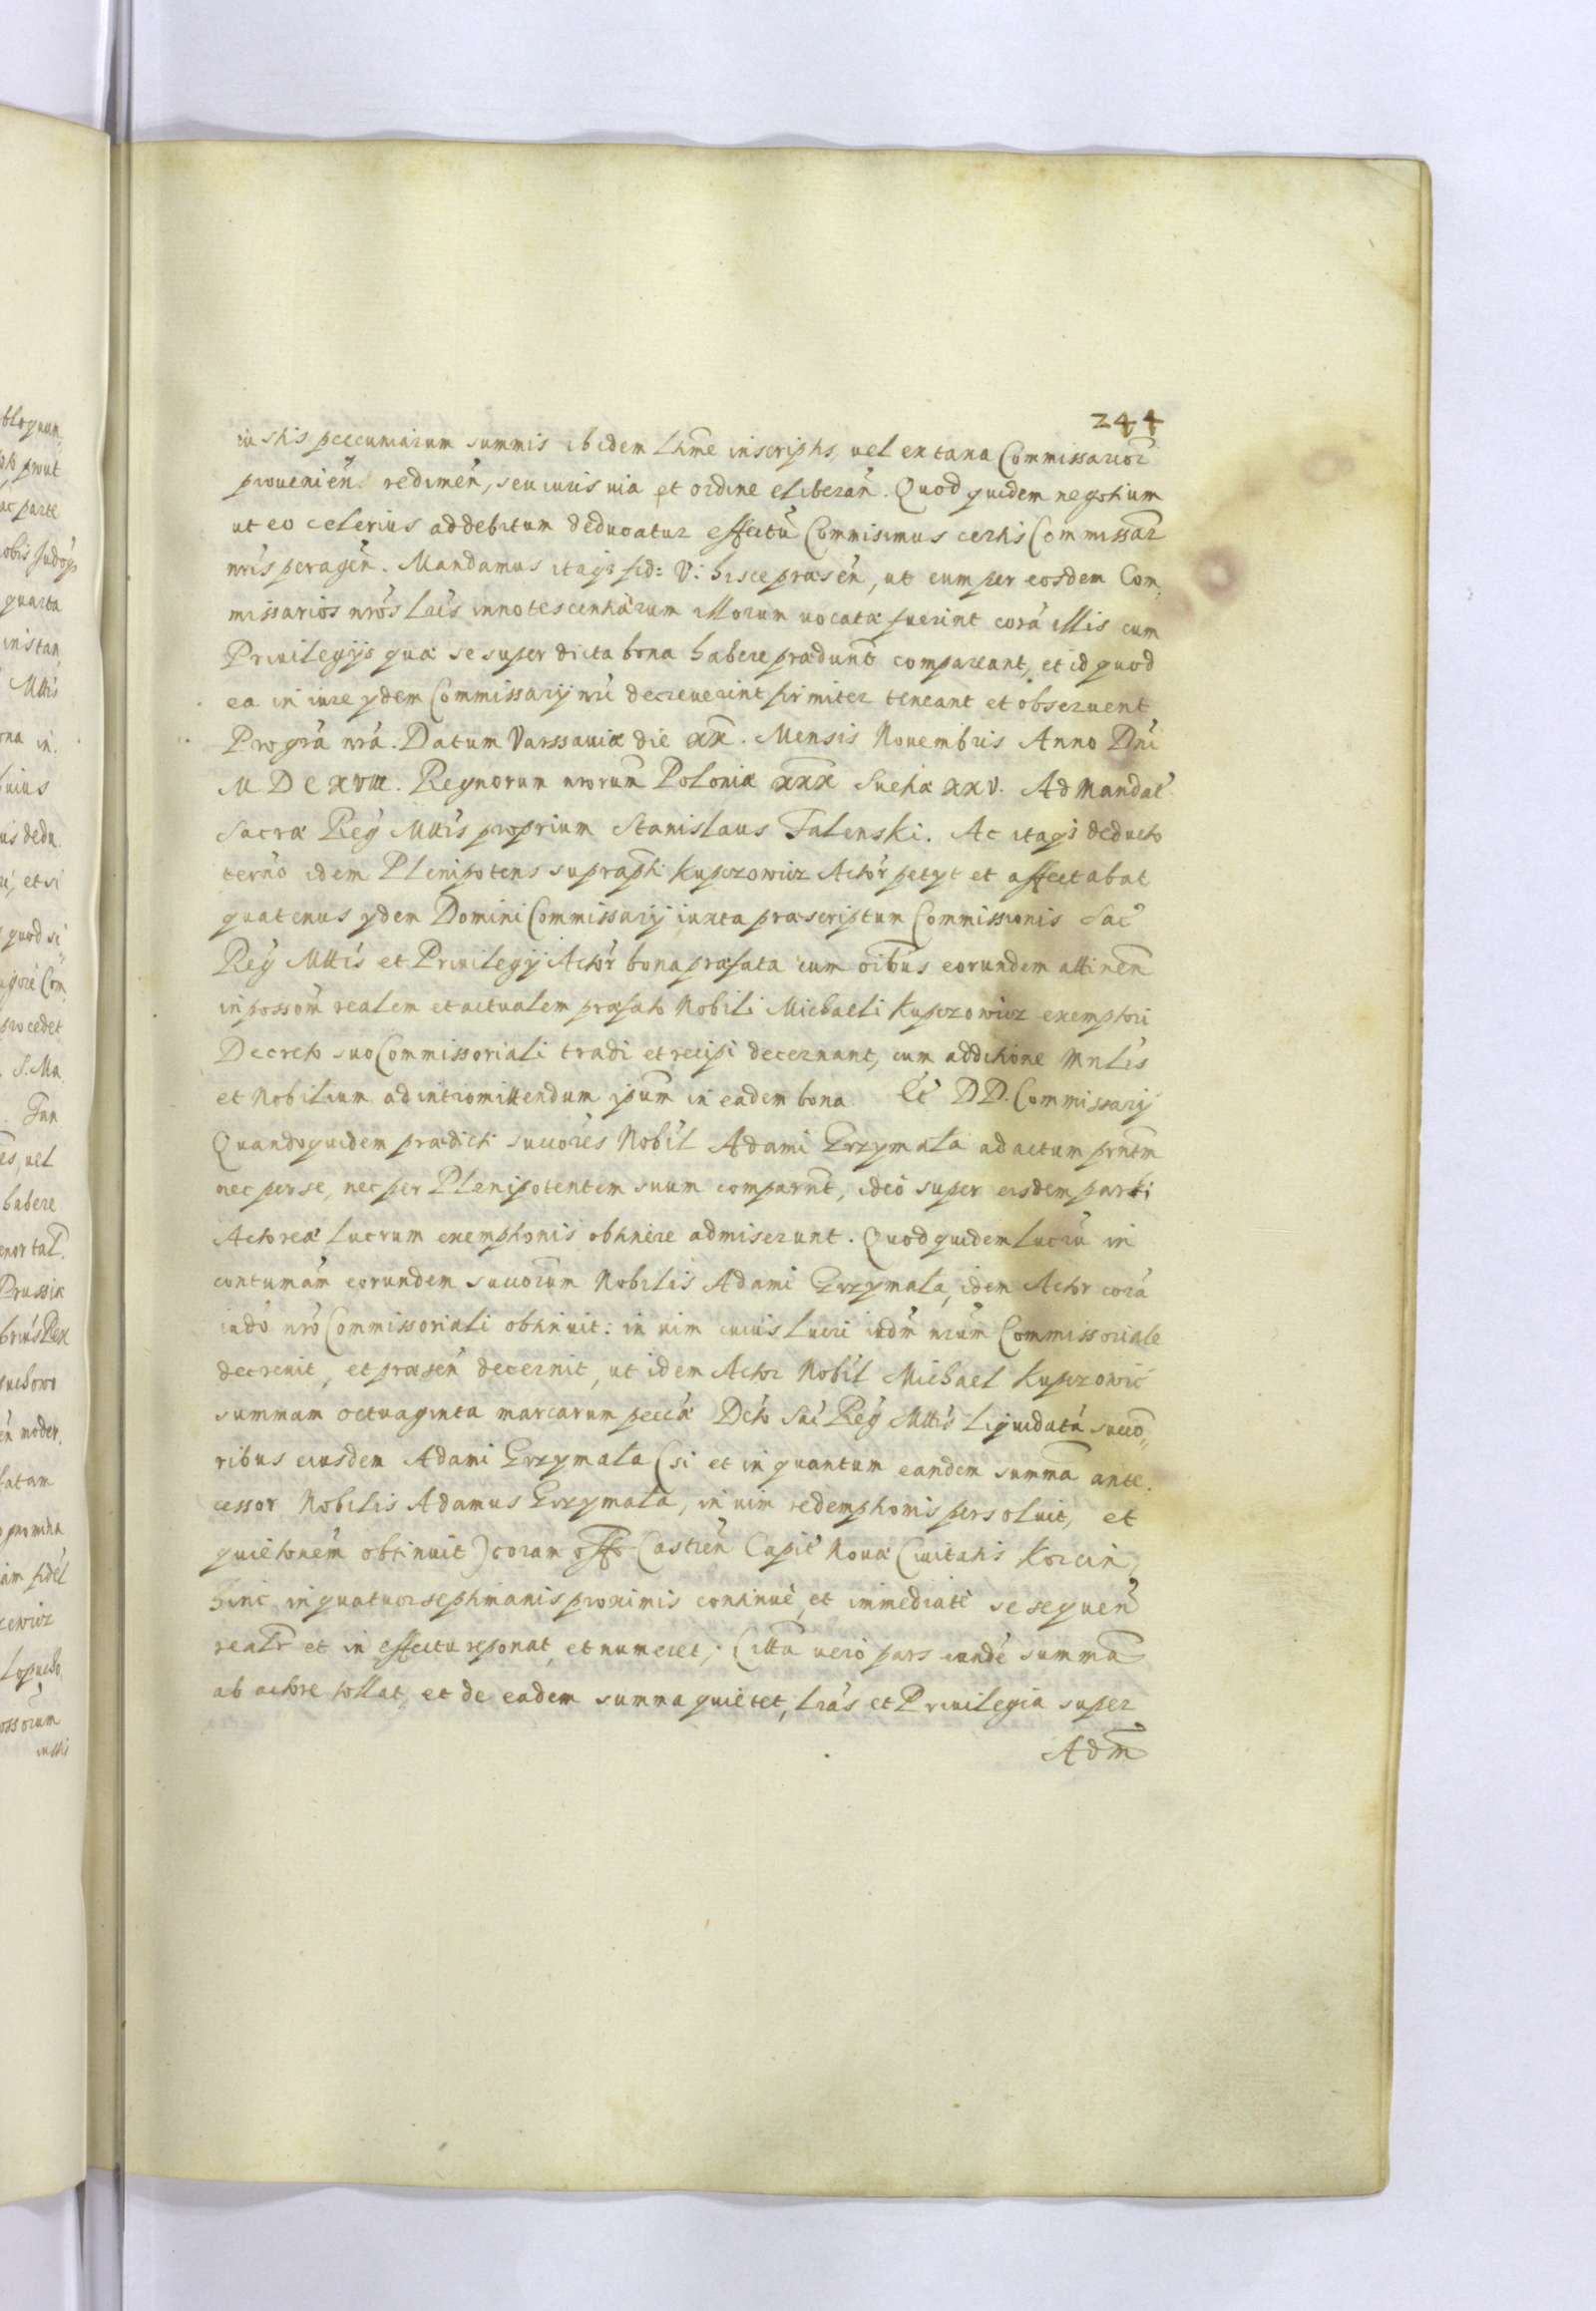 244
iustis pecuniarum summis ibidem lt̃me inscriptis, uel ex taxa Commissarior̃
prouenien̄ redimen̄, seu iuris uia et ordine eliberan̄. Quod quidem negotium
ut eo celerius ad debitum deducatur effectũ Commisimus certis Commissar̃
nr̃is peragen̄. Mandamus itaq3 fid: V: hisce præsen̄, ut cum per eosdem Com,
missarios nr̃os lr̃is innotescentiarum illorum uocatæ fuerint corã illis cum
Priuilegijs quæ se super dicta bona habere prædunt compareant, et id quod
ea in iure ydem Commissarij nr̃i decreuerint firmiter teneant et obseruent
Pro gr̃a nr̃a. Datum Varssauiæ die xx. Mensis Nouembris Anno Dn̄i
M D C XVIII. Regnorum nr̃orum Poloniæ xxx Suetiæ xxv. Ad Mandat̃
Sacræ Reg̃ Mttis proprium Stanislaus Falenski. Ac itaq3 deducto
tern̄o idem Plenipotens supraph̃i Kupczowicz Actor̃ petyt et affectabat
quatenus ydem Domini Commissarij iuxta præscriptum Commissionis Sac̃
Reg̃ Mttis et Priuilegij Actor̃ bona præfata cum oĩbus eorundem attinen̄
in possom̃ realem et actualem præfato Nobili Michaeli Kupczowicz exemptori
Decreto suo Commissoriali tradi et recipi decernant, cum additione Mnl̃is
et Nobilium ad intromittendum ipsum in eadem bona Et DD. Commissarij
Quandoquidem prædicti succores Nobil̃ Adami Grzymała ad actum prñtm
nec per se, nec per Plenipotentem suum comparnt̃, ideo super eisdem parti
Actoreæ lucrum exemptionis obtinere admiserunt. Quod quidem lucrũ in
contumam̃ eorundem succorum Nobilis Adami Grzymała, idem Actor corã
iudõ nr̃o Commissoriali obtinuit: in uim cuius lucri iudm̃ nr̃um Commissoriale
decreuit, et præsen̄ decernit, ut idem Actor Nobil̃ Michael Kupczowic̃
summam octuaginta marcarum peccã Dcto Sac̃ Reg̃ Mttis liquidatã succo„
ribus eiusdem Adami Grzymała (si et in quantum eandem summã ante,
cessor Nobilis Adamus Grzymała, in uim redemptionis persoluit, et
quietionem̃ obtinuit) coram offo Castren̄ Capit̃ Nouæ Ciuitatis Korcin,
hinc in quatuor septimanis proximis continuè, et immediatè se sequen̄
realr̃ et in effectu reponat, et numeret; Citta uero pars eandẽ summã
ab actore tollat, et de eadem summa quietet, lr̃as et Priuilegia super
Adm̃